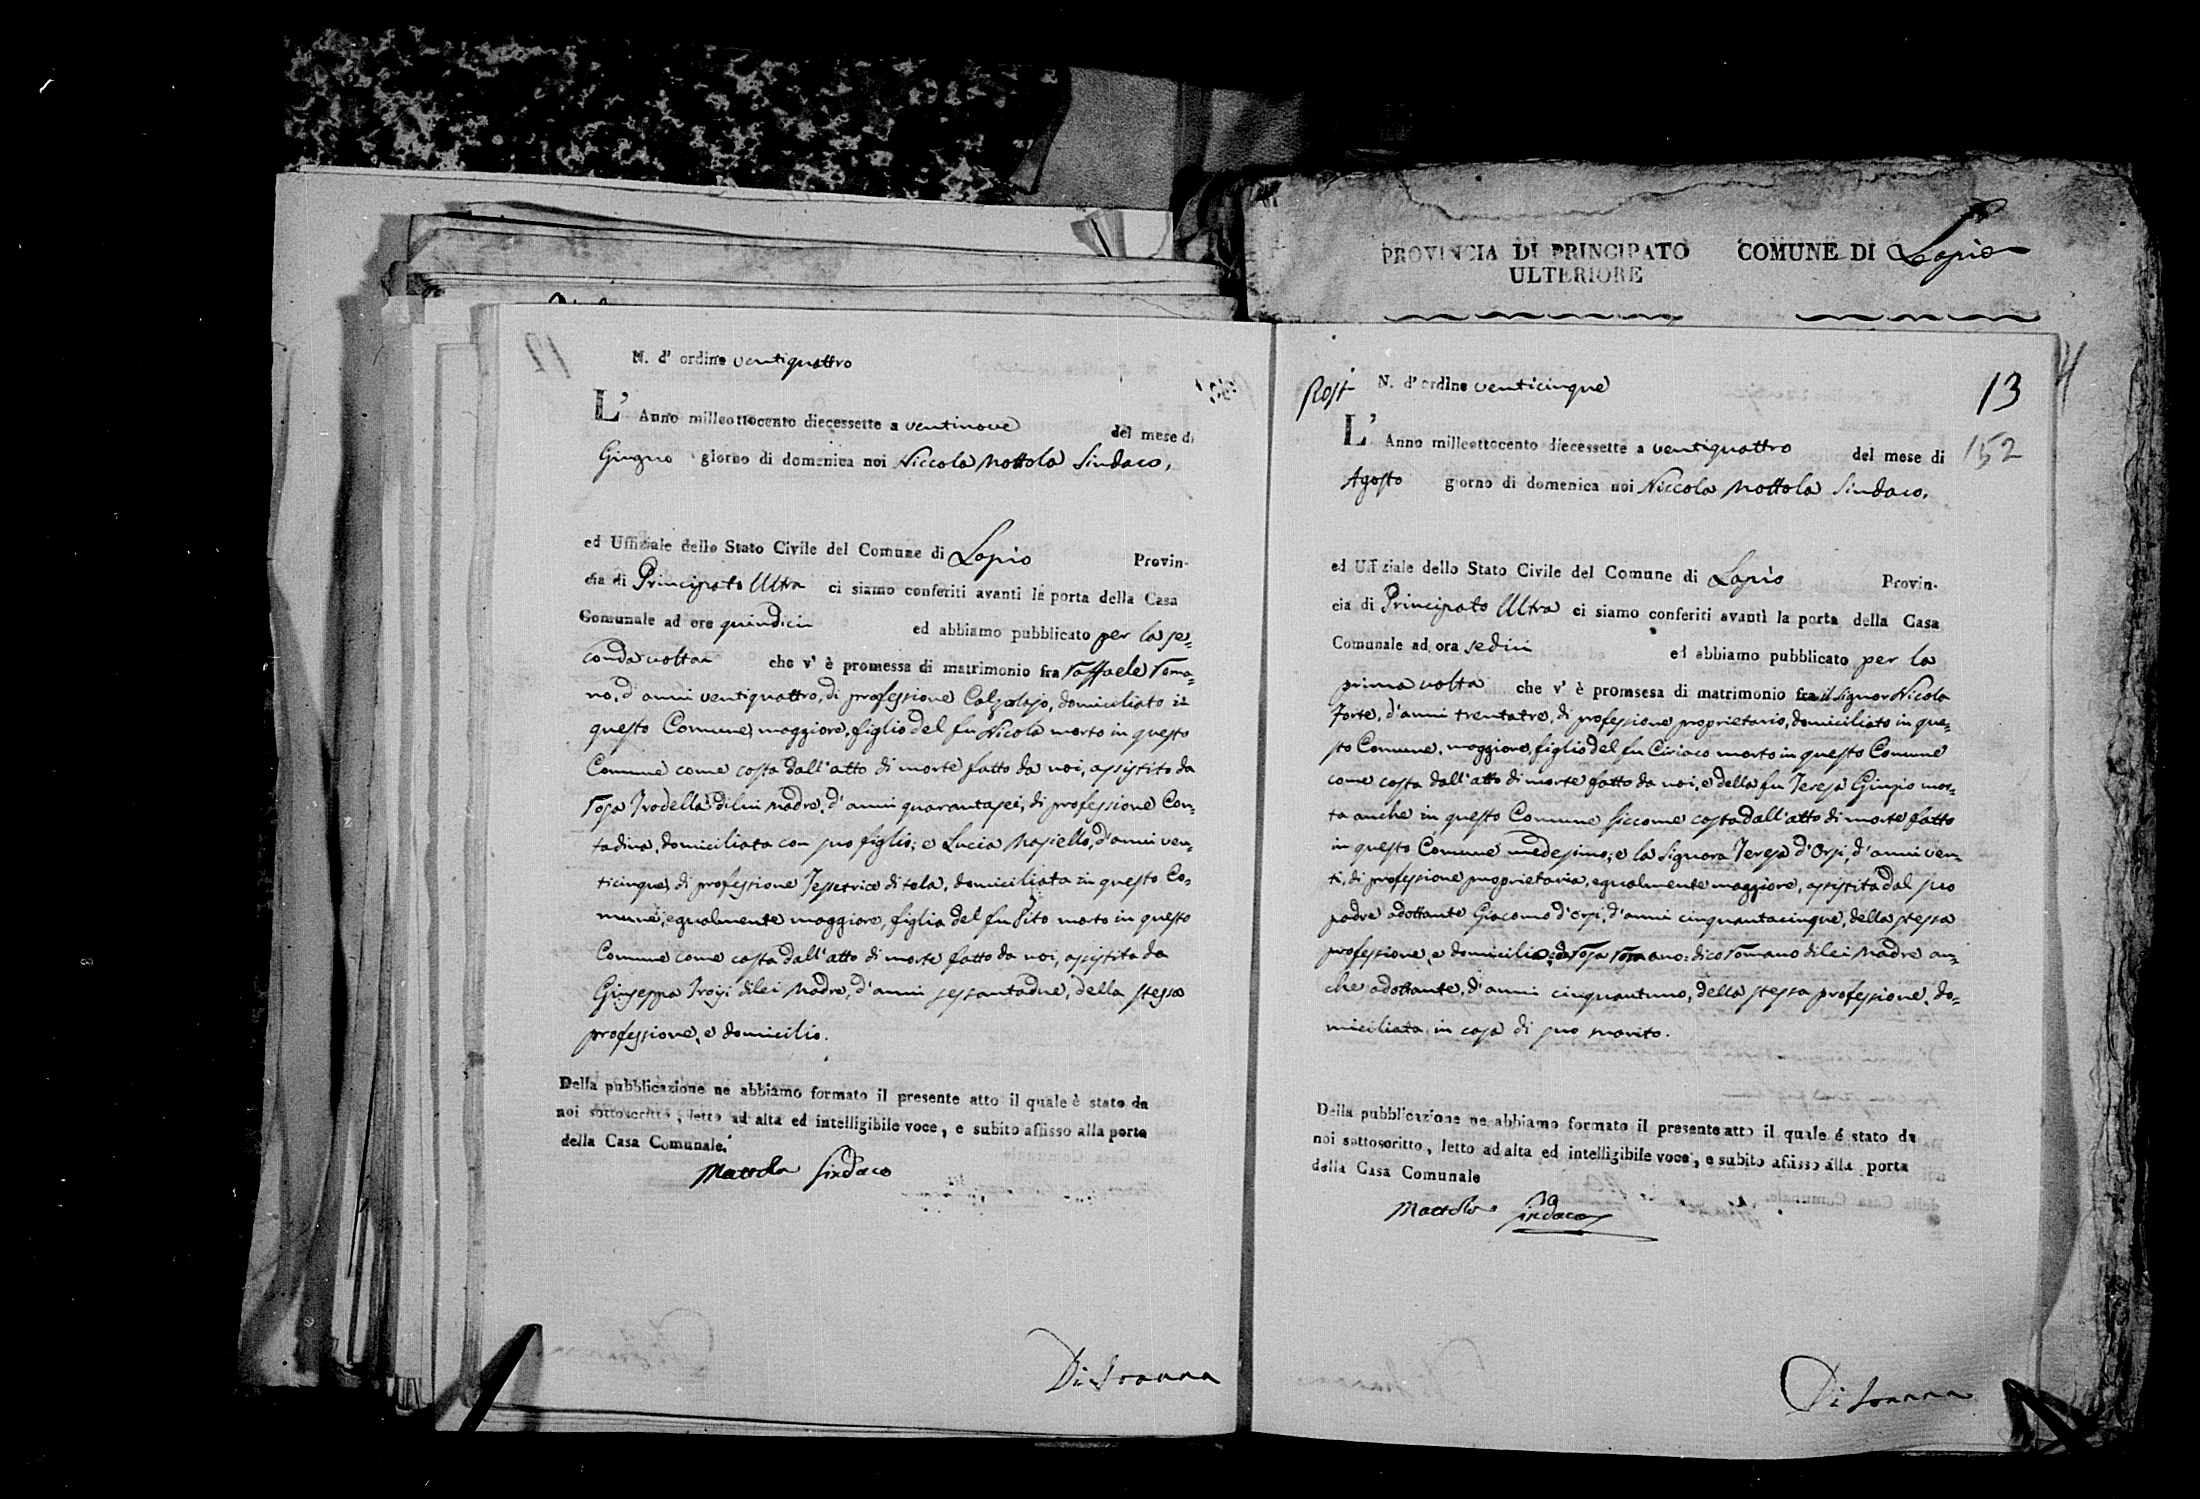 N. d' ordine ventiquattro
L' Anno milleottocento diecessette a ventinove del mese di
Giugno giorno di domenica noi Niccola Mottola Sindaco,
ed Uffiziale dello Stato Civile del Comune di Lapio Provin-
cia di Principato Ultra ci siamo conferiti avanti la porta della Casa
Comunale ad ore quindici ed abbiamo pubblicato per la se-
conda volta che v' è promessa di matrimonio fra Raffaele Roma-
no, d'anni ventiquattro, di professione Calzolajo, domiciliato in
questo Comune, maggiore, figlio del fu Nicola morto in questo
Comune come costa dall'atto di morte fatto da noi, assistito da
Rosa Trodella di lui Madre, d'anni quarantasei, di professione Con-
tadina, domiciliata con suo figlio; e Lucia Masiello, d'anni ven-
ticinque, di professione Tessetrice di tela, domiciliata in questo Co-
mune, egualmente maggiore, figlia del fu Vito morto in questo
Comune come costa dall'atto di morte fatto da noi, assistita da
Giuseppa Troisi di lei Madre, d'anni sessantadue, della stessa
professione, e domicilio.
Della pubblicazione ne abbiamo formato il presente atto il quale è stato da
noi sottoscritto, letto ad alta ed intelligibile voce, e subito affisso alla porta
della Casa Comunale.
Mottola Sindaco
Di Ioanna
PROVINCIA DI PRINCIPATO COMUNE DI Lapio
ULTERIORE
13
152
Post N. d' ordine venticinque
L' Anno milleottocento diecessette a ventiquattro del mese di
Agosto giorno di domenica noi Niccola Mottola Sindaco,
ed Uffiziale dello Stato Civile del Comune di Lapio Provin-
cia di Principato Ultra ci siamo conferiti avanti la porta della Casa
Comunale ad ora sedici ed abbiamo pubblicato per la
prima volta che v' è promsesa di matrimonio fra il Signor Nicola
Forte, d'anni trentatre, di professione proprietario, domiciliato in que-
sto Comune, maggiore, figlio del fu Ciriaco morto in questo Comune
come costa dall'atto di morte fatto da noi, e della fu Teresa Giusio mor-
ta anche in questo Comune siccome costa dall'atto di morte fatto
in questo Comune medesimo; e la Signora Teresa d'Orsi, d'anni ven-
ti, di professione proprietaria, egualmente maggiore, assistita dal suo
padre adottante Giacomo d'Orsi, d'anni cinquantacinque, della stessa
professione, e domicilio, e da Rosa Romano: dico Romano di lei Madre an-
che adottante, d'anni cinquantuno, della stessa professione, do-
miciliata in casa di suo marito.
Della pubblicazione ne abbiamo formato il presente atto il quale é stato da
noi sottoscritto, letto ad alta ed intelligibile voce, e subito affisso alla porta
della Casa Comunale
Mottola Sindaco
Di Ioanna